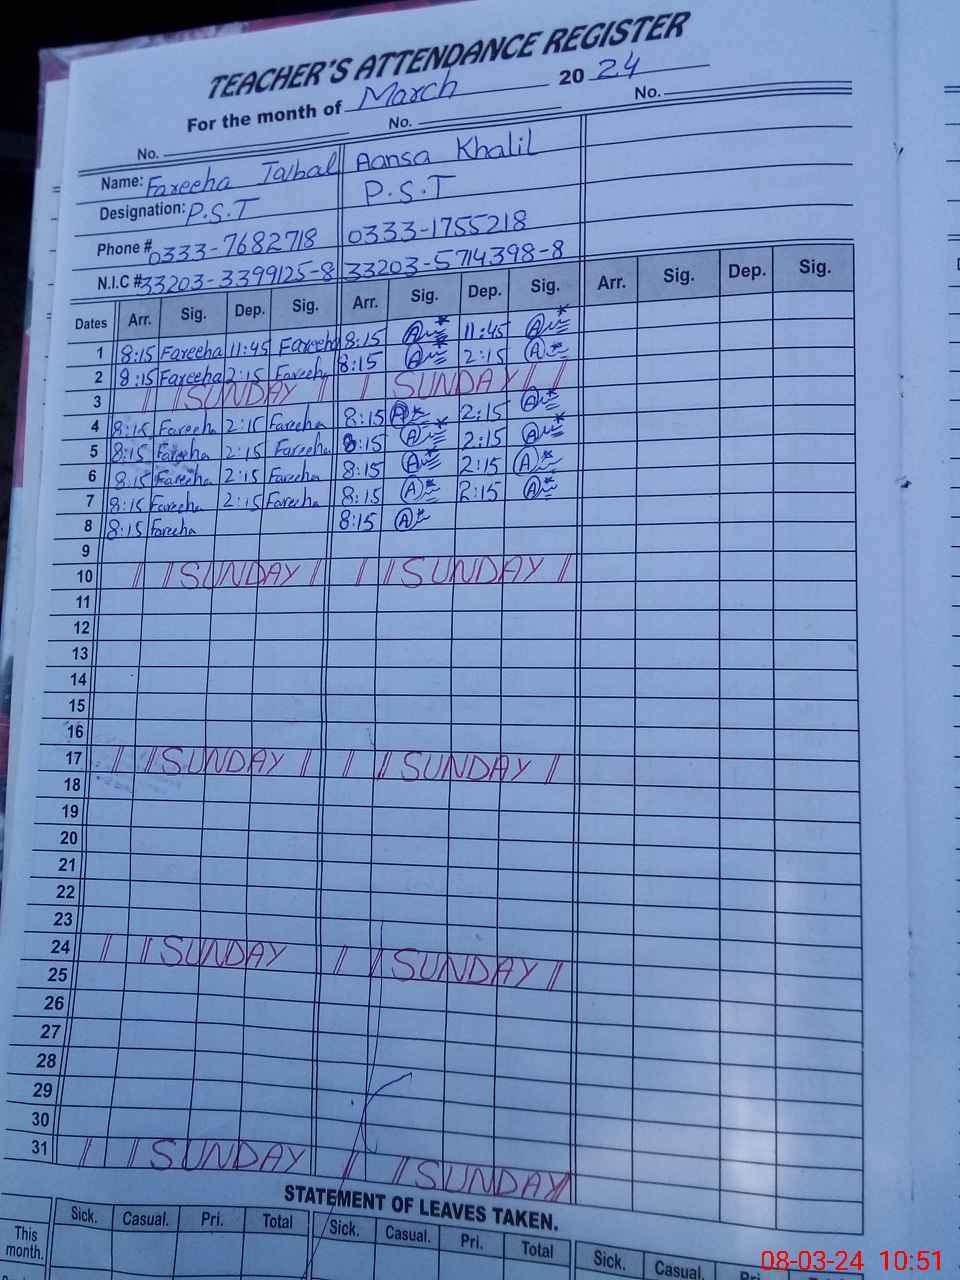 TEACHER'S ATTENDANCE REGISTER
For the month of March 2024
No. No. No.
Name: Fareeha Iqbal Aansa Khalil
Designation: P.S.T P.S.T
Phone # 0333-7682718 0333-1755218
N.I.C # 33203-3399125-8 33203-5714398-8
Dates Arr. Sig. Dep. Sig. Arr. Sig. Dep. Sig. Arr. Sig. Dep. Sig.
1 8:15 Fareeha 11:45 Fareeha 8:15 A 11:45 A
2 8:15 Fareeha 2:15 Fareeha 8:15 A 2:15 A
3 SUNDAY SUNDAY
4 8:15 Fareeha 2:15 Fareeha 8:15 A 2:15 A
5 8:15 Fareeha 2:15 Fareeha 8:15 A 2:15 A
6 8:15 Fareeha 2:15 Fareeha 8:15 A 2:15 A
7 8:15 Fareeha 2:15 Fareeha 8:15 A 2:15 A
8 8:15 Fareeha 8:15 A
9
10 SUNDAY SUNDAY
11
12
13
14
15
16
17 SUNDAY SUNDAY
18
19
20
21
22
23
24 SUNDAY SUNDAY
25
26
27
28
29
30
31 SUNDAY SUNDAY
STATEMENT OF LEAVES TAKEN.
Sick. Casual. Pri. Total Sick. Casual. Pri. Total Sick. Casual. Pri.
This month.
08-03-24 10:51